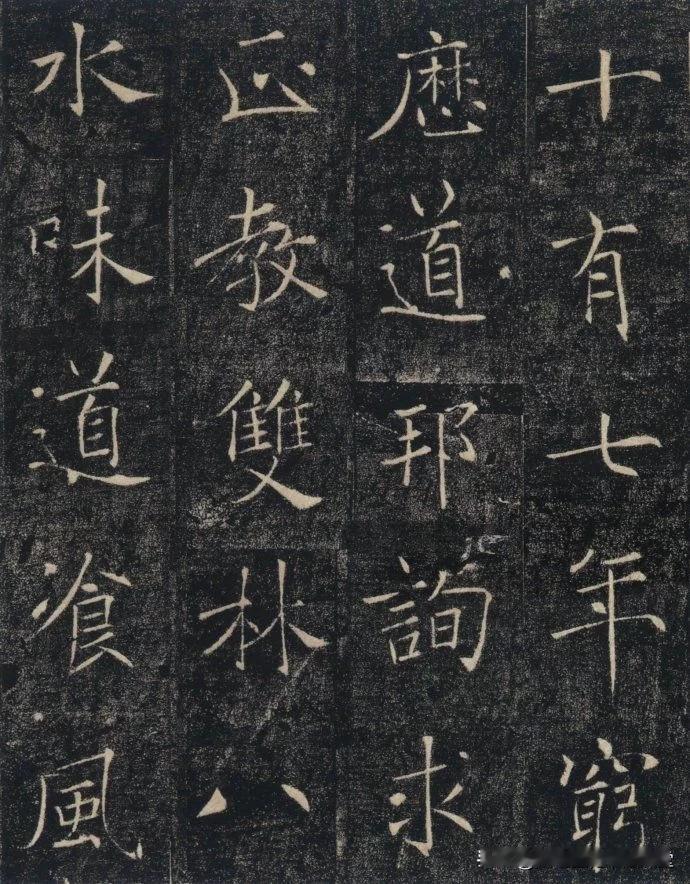 十有七年窮
歷道邦詢求
正教雙林八
水味道飡風